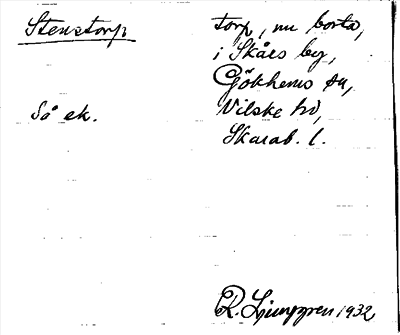 Stenstorp
torp, nu borta,
i Skårs by,
Gökhems sn,
Så ek.
Vilske hd,
Skarab. l.
R. Ljunggren 1932